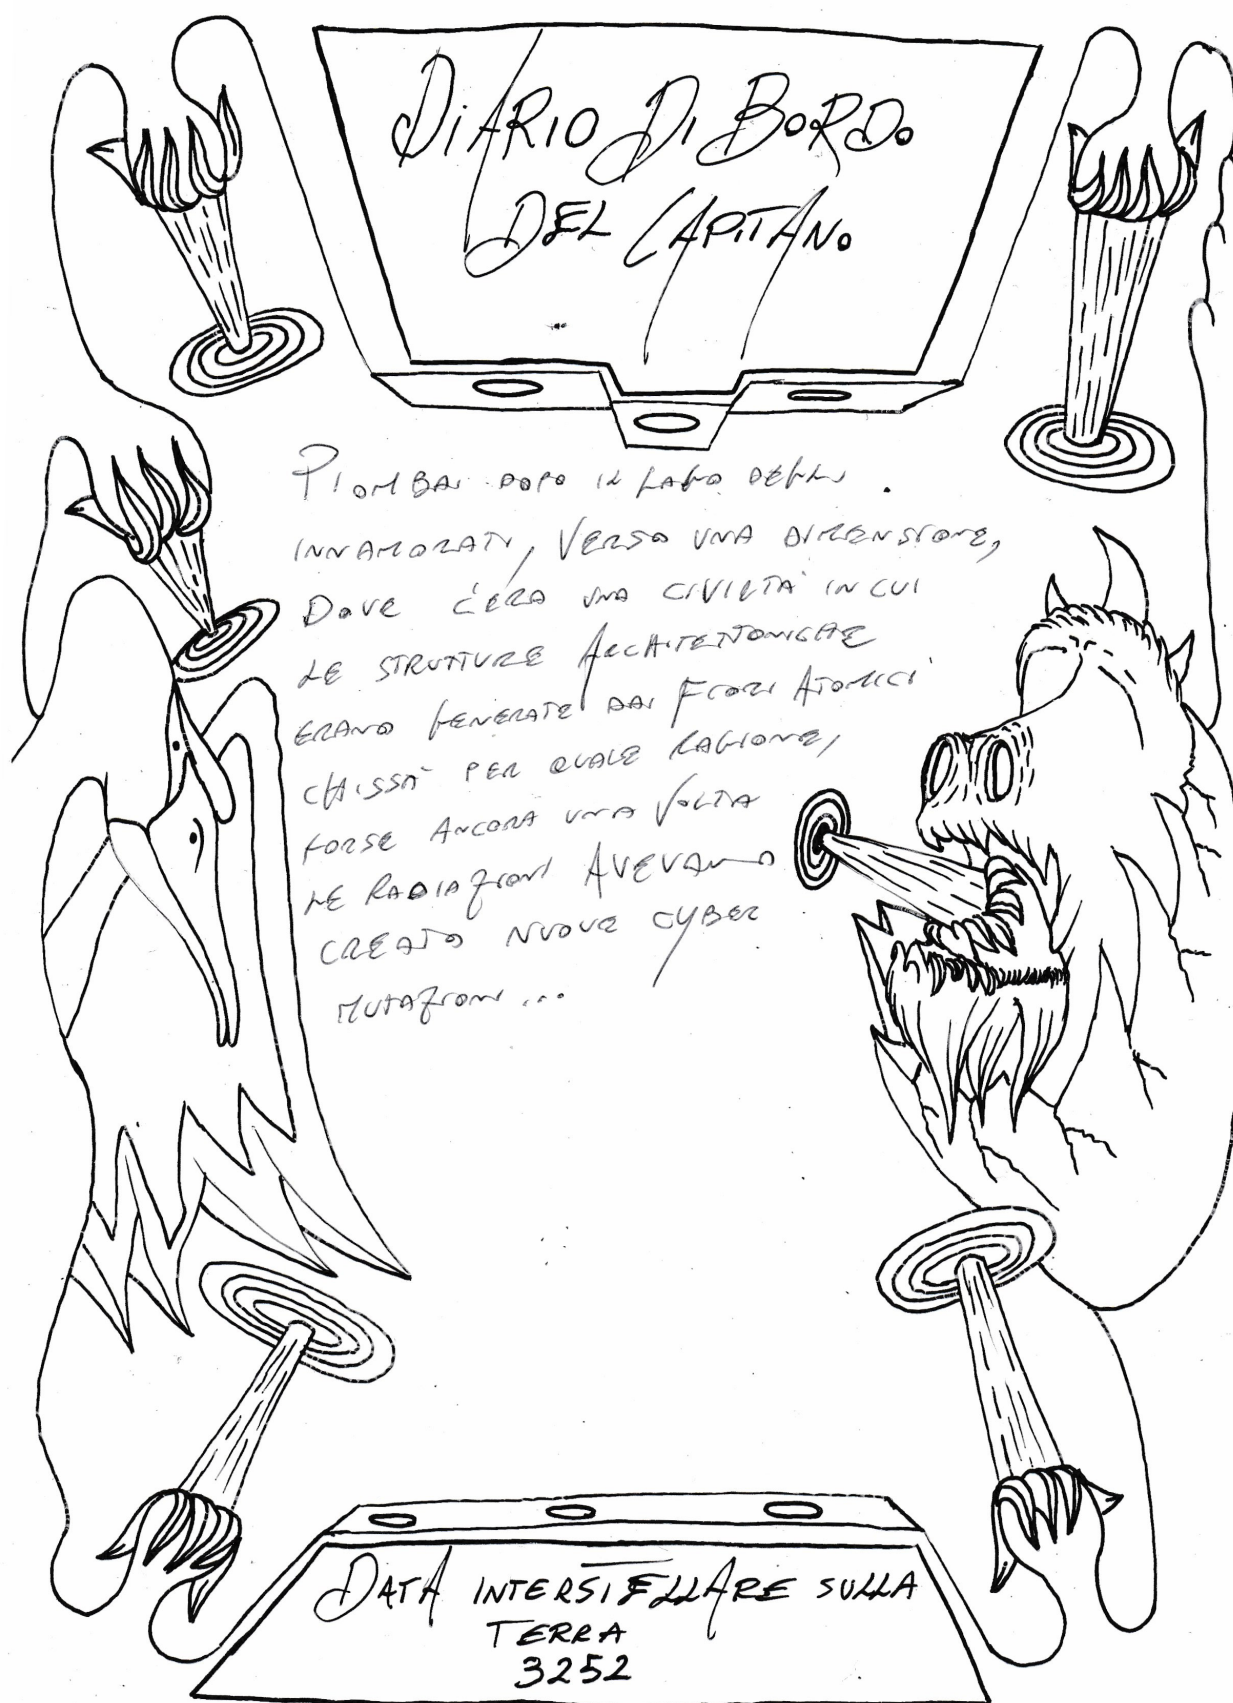 DIARIO DI BORDO
DEL CAPITANO
PIOMBAI DOPO IL LAGO DEGLI
INNAMORATI, VERSO UNA DIMENSIONE,
DOVE C'ERA UNA CIVILTÀ IN CUI
LE STRUTTURE ARCHITETTONICHE
ERANO GENERATE DAI FIORI ATOMICI
CHISSÀ PER QUALE RAGIONE,
FORSE ANCORA UNA VOLTA
LE RADIAZIONI AVEVANO
CREATO NUOVE CYBER
MUTAZIONI...
DATA INTERSTELLARE SULLA
TERRA
3252